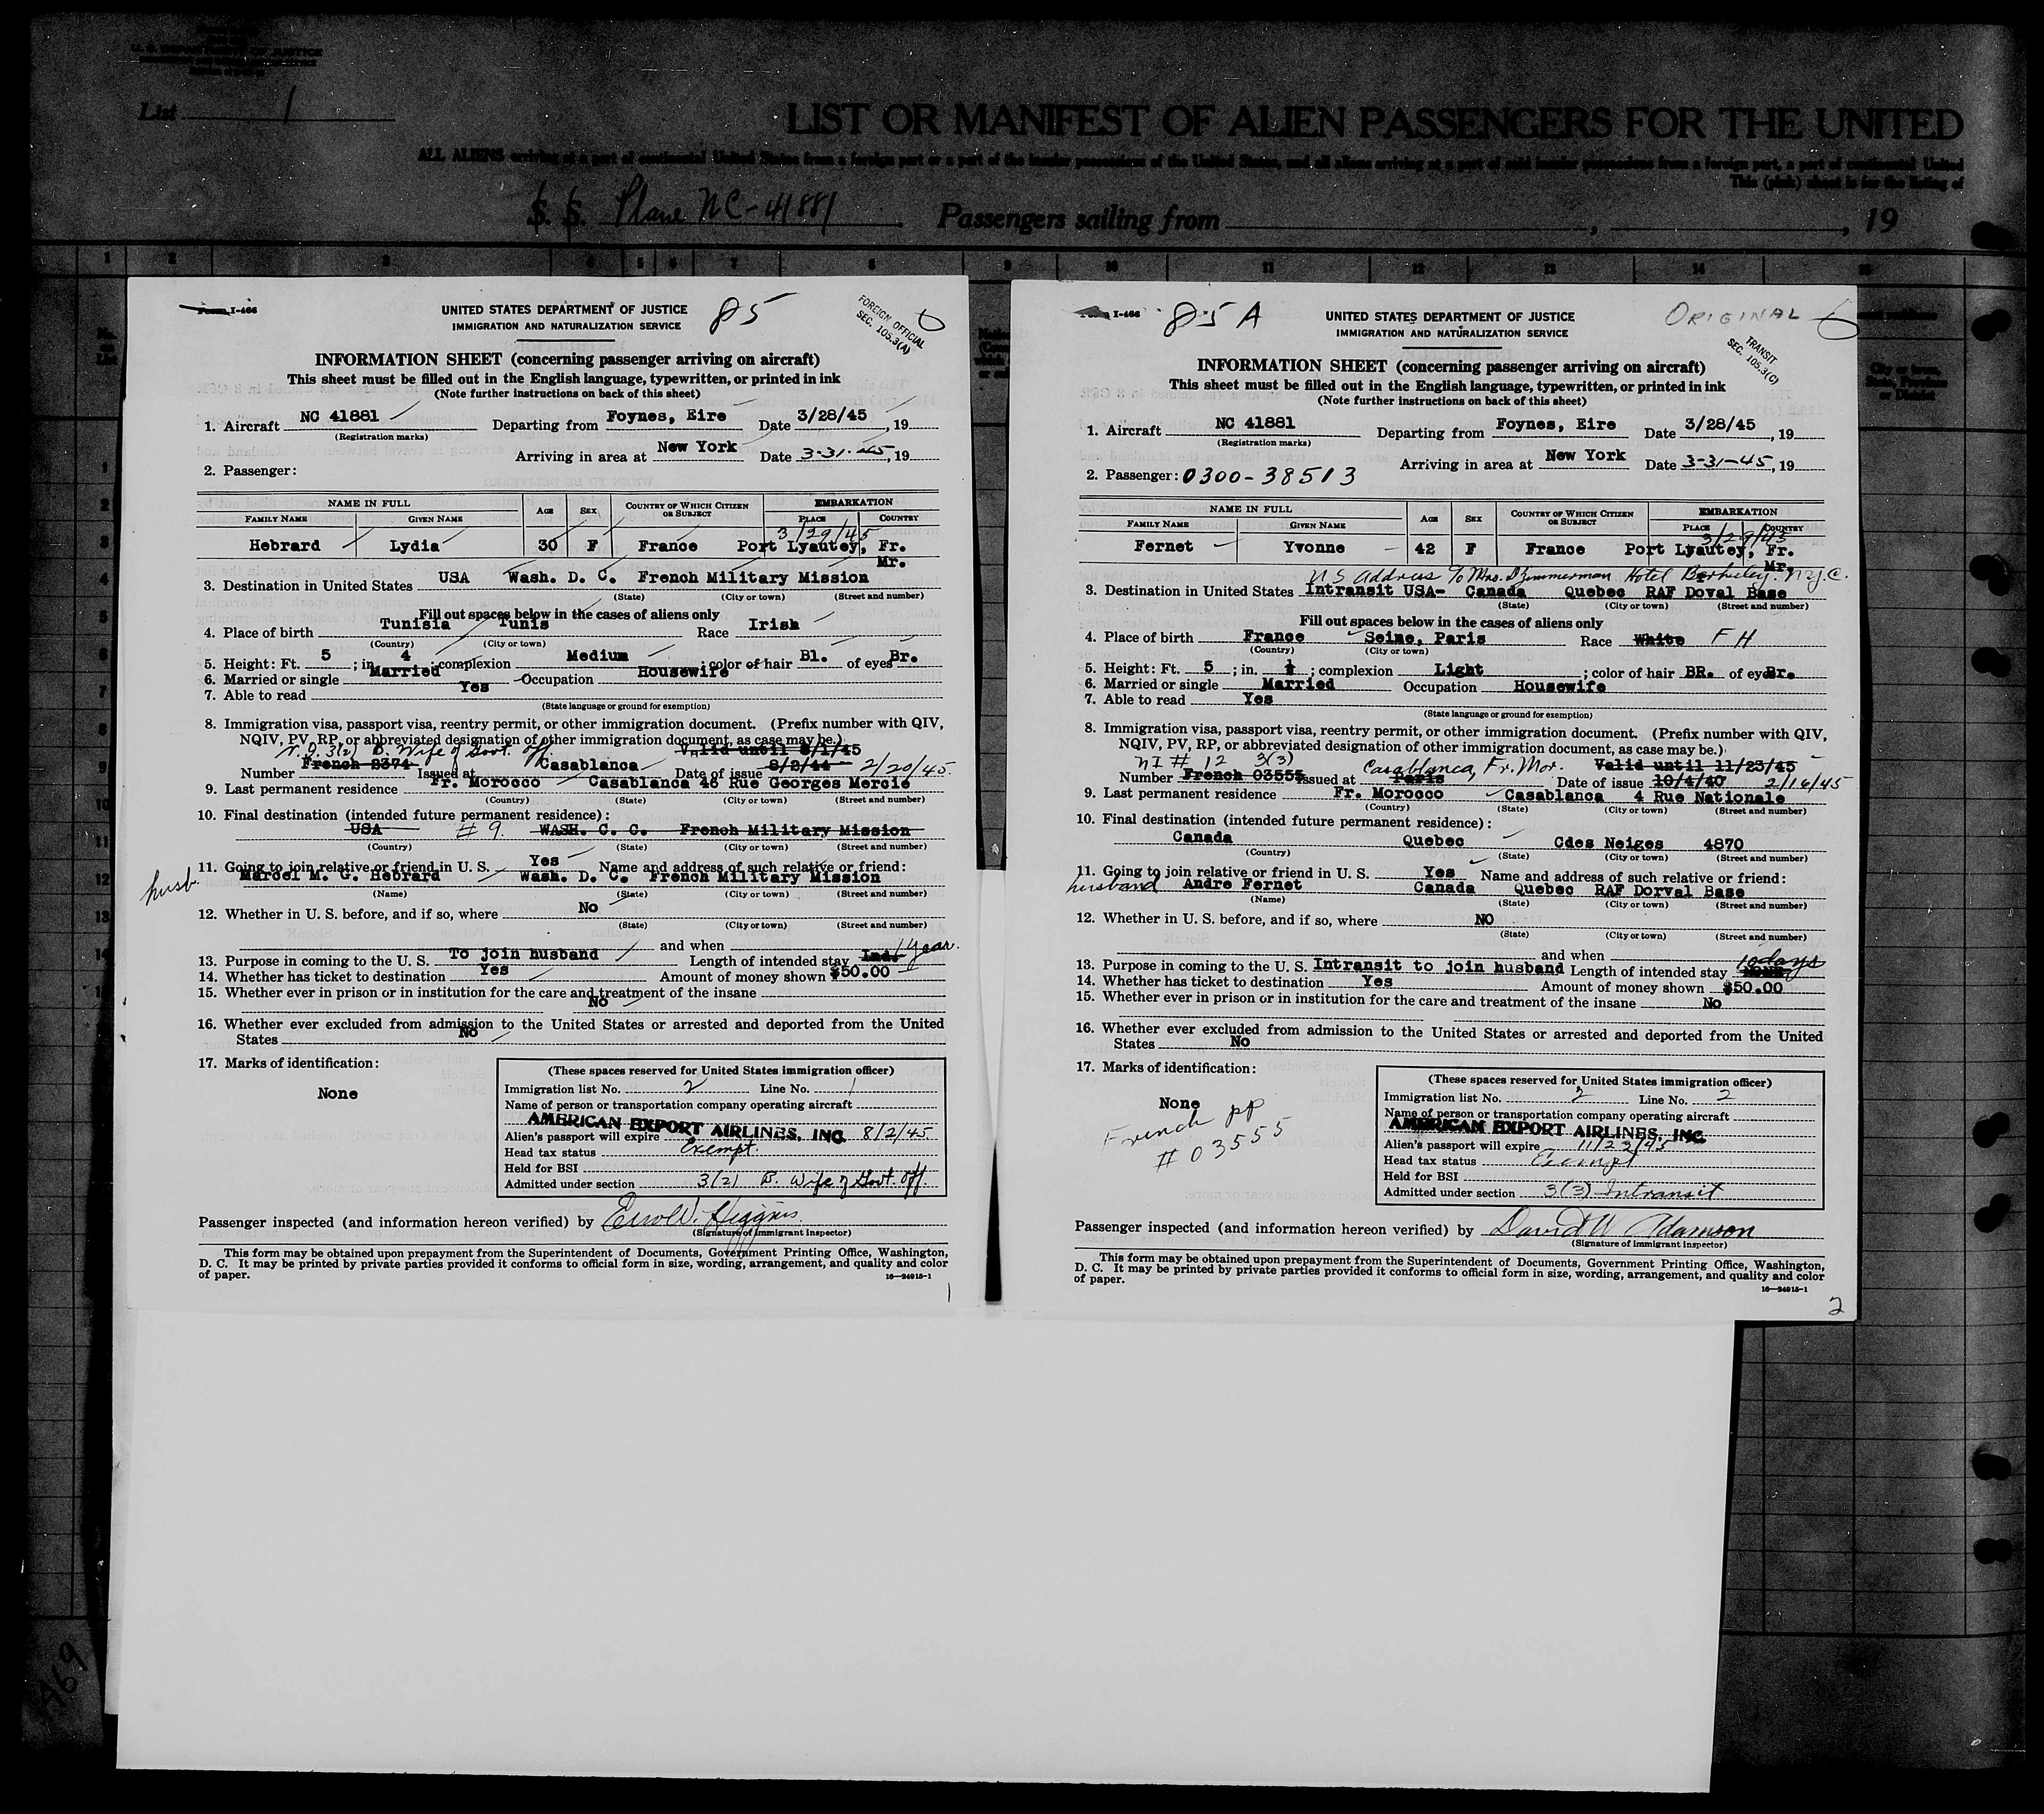 List 1
LIST OR MANIFEST OF ALIEN PASSENGERS FOR THE UNITED
ALL ALIENS arriving at a port of continental United States from a foreign port or a port of the insular possessions of the United States, and all aliens arriving at a port of said insular possessions from a foreign port, a port of continental United
This (pink) sheet is for the listing of
S. S. Plane NC-41881 Passengers sailing from , 19
Form I-466
UNITED STATES DEPARTMENT OF JUSTICE
IMMIGRATION AND NATURALIZATION SERVICE
85
FOREIGN OFFICIAL
SEC. 105.3(A)
INFORMATION SHEET (concerning passenger arriving on aircraft)
This sheet must be filled out in the English language, typewritten, or printed in ink
(Note further instructions on back of this sheet)
1. Aircraft NC 41881 Departing from Foynes, Eire Date 3/28/45, 19
(Registration marks)
Arriving in area at New York Date 3-31-45, 19
2. Passenger:
NAME IN FULL AGE SEX COUNTRY OF WHICH CITIZEN OR SUBJECT EMBARKATION
FAMILY NAME GIVEN NAME PLACE COUNTRY
3/29/45
Hebrard Lydia 30 F France Port Lyautey, Fr.
Mr.
3. Destination in United States USA Wash. D. C. French Military Mission
(State) (City or town) (Street and number)
Fill out spaces below in the cases of aliens only
4. Place of birth Tunisia Tunis Race Irish
(Country) (City or town)
5. Height: Ft. 5 ; in. 4 ; complexion Medium ; color of hair Bl. of eyes Br.
6. Married or single Married Occupation Housewife
7. Able to read Yes
(State language or ground for exemption)
8. Immigration visa, passport visa, reentry permit, or other immigration document. (Prefix number with QIV,
NQIV, PV, RP, or abbreviated designation of other immigration document, as case may be.)
N.I. 3(2) B. Wife of Govt. off Valid until 8/1/45
Number French 2374 Issued at Casablanca Date of issue 8/2/44 2/20/45
9. Last permanent residence Fr. Morocco Casablanca 46 Rue Georges Mercie
(Country) (State) (City or town) (Street and number)
10. Final destination (intended future permanent residence):
USA # 9. WASH. C. C. French Military Mission
(Country) (State) (City or town) (Street and number)
11. Going to join relative or friend in U. S. Yes Name and address of such relative or friend:
husb. Marcel M. G. Hebrard Wash. D. C. French Military Mission
(Name) (State) (City or town) (Street and number)
12. Whether in U. S. before, and if so, where No
(State) (City or town) (Street and number)
and when
13. Purpose in coming to the U. S. To join husband Length of intended stay Ind. 1 year.
14. Whether has ticket to destination Yes Amount of money shown $50.00
15. Whether ever in prison or in institution for the care and treatment of the insane
No
16. Whether ever excluded from admission to the United States or arrested and deported from the United
States No
17. Marks of identification:
None
(These spaces reserved for United States immigration officer)
Immigration list No. 2 Line No. 1
Name of person or transportation company operating aircraft
AMERICAN EXPORT AIRLINES, INC.
Alien's passport will expire 8/2/45
Head tax status Exempt.
Held for BSI
Admitted under section 3(2) B. Wife of Govt. off.
Passenger inspected (and information hereon verified) by Errol W. Higgins
(Signature of immigrant inspector)
This form may be obtained upon prepayment from the Superintendent of Documents, Government Printing Office, Washington,
D. C. It may be printed by private parties provided it conforms to official form in size, wording, arrangement, and quality and color
of paper. 16—24915-1
1
Form I-466
85 A
UNITED STATES DEPARTMENT OF JUSTICE
IMMIGRATION AND NATURALIZATION SERVICE
ORIGINAL
TRANSIT
SEC. 105.3(C)
INFORMATION SHEET (concerning passenger arriving on aircraft)
This sheet must be filled out in the English language, typewritten, or printed in ink
(Note further instructions on back of this sheet)
1. Aircraft NC 41881 Departing from Foynes, Eire Date 3/28/45, 19
(Registration marks)
Arriving in area at New York Date 3-31-45, 19
2. Passenger: 0300-38513
NAME IN FULL AGE SEX COUNTRY OF WHICH CITIZEN OR SUBJECT EMBARKATION
FAMILY NAME GIVEN NAME PLACE COUNTRY
3/29/45
Fernet Yvonne 42 F France Port Lyautey, Fr.
Mr.
US Address c/o Mrs. D Zimmerman Hotel Berkeley. N.Y.C.
3. Destination in United States Intransit USA- Canada Quebec RAF Doval Base
(State) (City or town) (Street and number)
Fill out spaces below in the cases of aliens only
4. Place of birth France Seine, Paris Race White FH
(Country) (City or town)
5. Height: Ft. 5 ; in. ; complexion Light ; color of hair BR. of eyes Br.
6. Married or single Married Occupation Housewife
7. Able to read Yes
(State language or ground for exemption)
8. Immigration visa, passport visa, reentry permit, or other immigration document. (Prefix number with QIV,
NQIV, PV, RP, or abbreviated designation of other immigration document, as case may be.)
NI # 12 3(3) Casablanca, Fr. Mor. Valid until 11/23/45
Number French 03555 Issued at Paris Date of issue 10/4/40 2/16/45
9. Last permanent residence Fr. Morocco Casablanca 4 Rue Nationale
(Country) (State) (City or town) (Street and number)
10. Final destination (intended future permanent residence):
Canada Quebec Cdes Neiges 4870
(Country) (State) (City or town) (Street and number)
11. Going to join relative or friend in U. S. Yes Name and address of such relative or friend:
husband Andre Fernet Canada Quebec RAF Dorval Base
(Name) (State) (City or town) (Street and number)
12. Whether in U. S. before, and if so, where NO
(State) (City or town) (Street and number)
and when
13. Purpose in coming to the U. S. Intransit to join husband Length of intended stay 10 days
14. Whether has ticket to destination Yes Amount of money shown $50.00
15. Whether ever in prison or in institution for the care and treatment of the insane No
16. Whether ever excluded from admission to the United States or arrested and deported from the United
States No
17. Marks of identification:
None
French pp
# 03555
(These spaces reserved for United States immigration officer)
Immigration list No. 2 Line No. 2
Name of person or transportation company operating aircraft
AMERICAN EXPORT AIRLINES, INC.
Alien's passport will expire 11/23/45
Head tax status Exempt
Held for BSI
Admitted under section 3(3) Intransit
Passenger inspected (and information hereon verified) by David W Adamson
(Signature of immigrant inspector)
This form may be obtained upon prepayment from the Superintendent of Documents, Government Printing Office, Washington,
D. C. It may be printed by private parties provided it conforms to official form in size, wording, arrangement, and quality and color
of paper. 16—24915-1
2
469